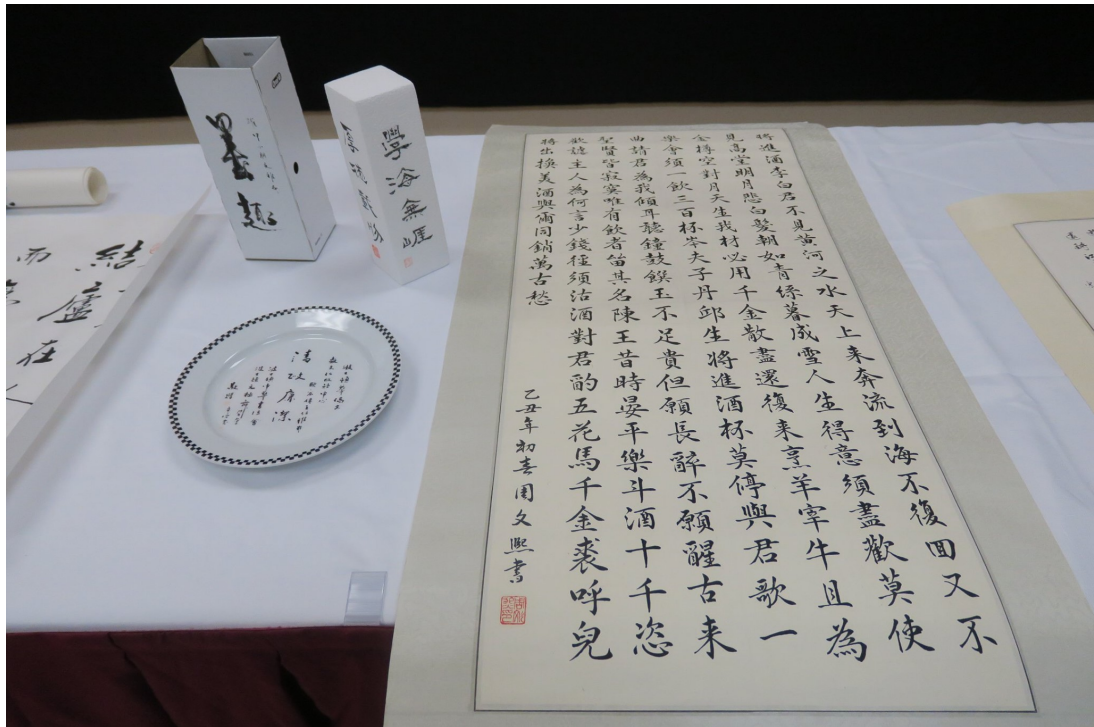 墨趣
學海無崖
結廬在人
而無
清政廉潔
將進酒李白君不見黃河之水天上来奔流到海不復回又不
見高堂明月悲白髮朝如青絲暮成雪人生得意須盡歡莫使
金樽空對月天生我材必用千金散盡還復来烹羊宰牛且為
樂會須一飲三百杯岑夫子丹邱生將進酒杯莫停與君歌一
曲請君為我傾耳聽鐘鼓饌玉不足貴但願長醉不願醒古来
聖賢皆寂寞唯有飲者留其名陳王昔時晏平樂斗酒十千恣
歡謔主人為何言少錢徑須沽酒對君酌五花馬千金裘呼兒
將出換美酒與爾同銷萬古愁
乙丑年初春周文熙書